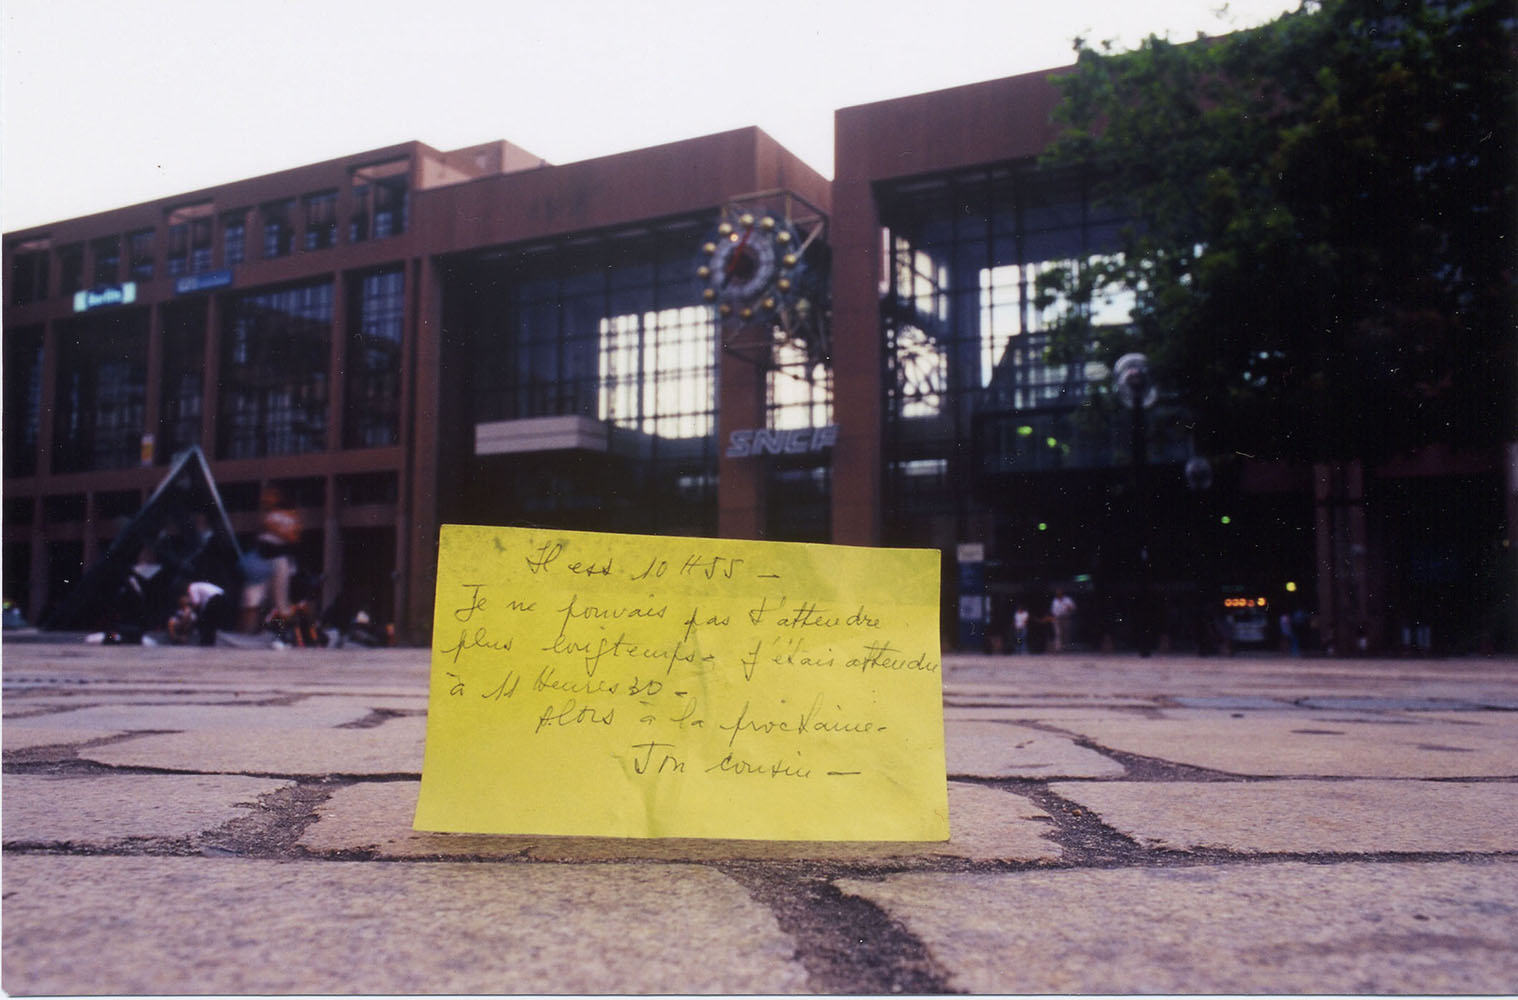 SNCF
Il est 10 H55 –
Je ne pouvais pas t'attendre
plus longtemps. J'étais attendu
à 11 Heures 30 –
Alors à la prochaine.
Ton cousin –